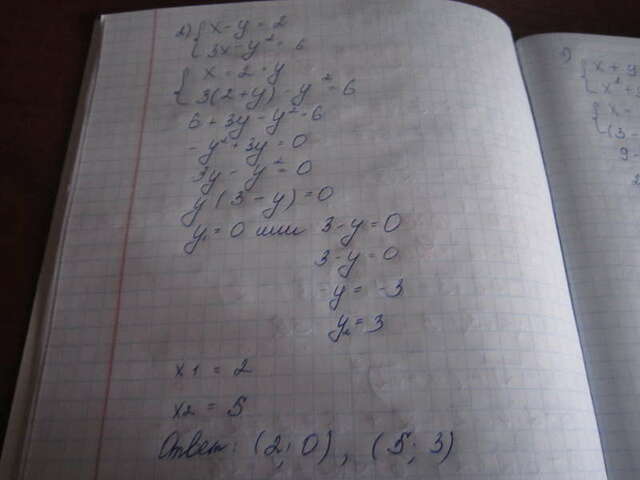 а) { x - y = 2
{ 3x - y² = 6
{ x = 2 + y
{ 3(2 + y) - y² = 6
6 + 3y - y² = 6
-y² + 3y = 0
3y - y² = 0
y(3 - y) = 0
y = 0 или 3 - y = 0
3 - y = 0
-y = -3
y₂ = 3
x1 = 2
x2 = 5
Ответ: (2; 0), (5; 3)
{ x + 3
{ x²
{ x -